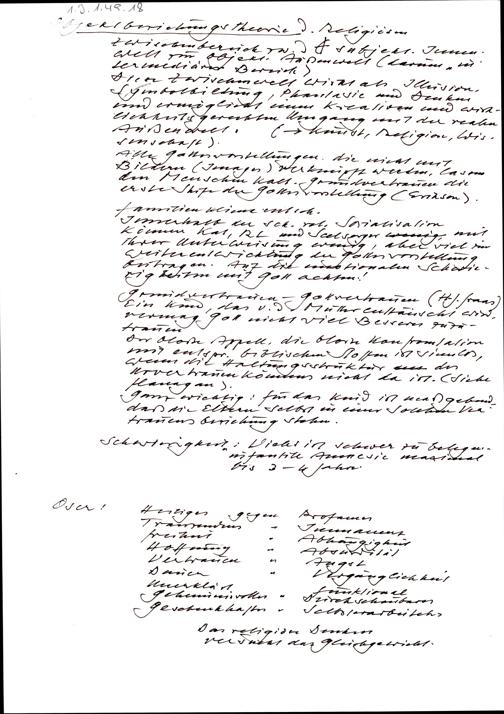 13.1.49.18
Objektbeziehungstheorie d. Religiösen
Zwischenbereich zw. subjekt. Innen-
welt und Objekt. Außenwelt (Darum: in-
termediärer Bereich)
Diese Zwischenwelt wirkt als Illusion,
Symbolbildung, Phantasie und Denken
und ermöglicht einen kreativen und wirk-
lichkeitsgerechten Umgang mit der realen
Außenwelt. (→ Kunst, Religion, Wis-
senschaft).
Alle Gottesvorstellungen, die nicht mit
Bildern (Images) verknüpft werden, lassen
den Menschen kalt. Grundvertrauen die
erste Stufe der Gottesvorstellung (Erikson).
Familienklima entsch.
Innerhalb der sek. rel. Sozialisation
können Kat, RL und Seelsorger wenig mit
ihrer Unterweisung, aber viel zur
Weiterentwicklung der Gottesvorstellung
beitragen. Auf die emotionalen Schwie-
rigkeiten mit Gott achten!
Grundvertrauen – Gottvertrauen (H.J. Fraas)
Ein Kind, das v. d. Mutter enttäuscht wird,
vermag Gott nicht viel Besseres zuzu-
trauen
Der bloße Appell, die bloße Konfrontation
mit entspr. biblischen Stoffen ist sinnlos,
wenn die Haltungsstruktur des
Urvertrauenkönnens nicht da ist. (Siehe
Flanagan).
Ganz wichtig: für das Kind ist maßgebend,
daß die Eltern selbst in einer solchen Ver-
trauensbeziehung stehen.
Schwierigkeit: Vieles ist schwer zu belegen
infantile Amnesie maximal
bis 3-4 Jahre
Oser:
Heiliges gegen Profanes
Transzendenz " Immanent
Freiheit " Abhängigkeit
Hoffnung " Absurdität
Vertrauen " Angst
Dauer " Vergänglichkeit
Unerklärl. funktional
Geheimnisvolles " Durchschaubares
Geschenkhaftes " Selbsterarbeitetes
Das religiöse Denken
versucht das Gleichgewicht.